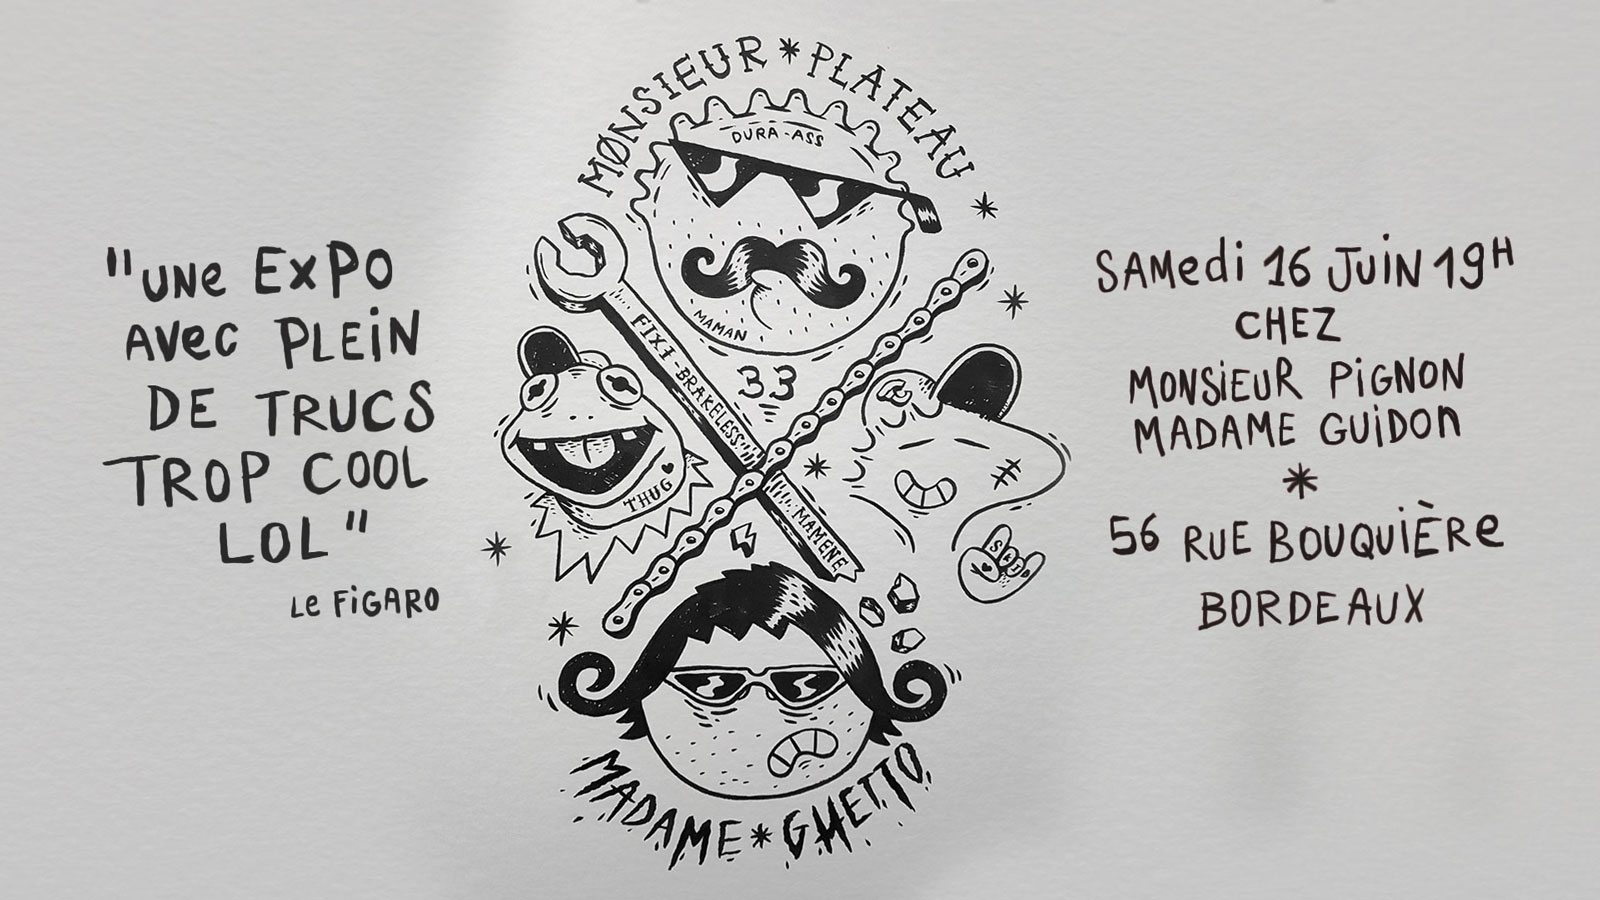 "UNE EXPO
AVEC PLEIN
DE TRUCS
TROP COOL
LOL"
LE FIGARO
MØNSIEUR * PLATEAU
DURA-ASS
MAMAN
33
FIXI-BRAKELESS
MAMENE
THUG
MADAME * GHETTO
SAMEDI 16 JUIN 19H
CHEZ
MONSIEUR PIGNON
MADAME GUIDON
*
56 RUE BOUQUIÈRE
BORDEAUX